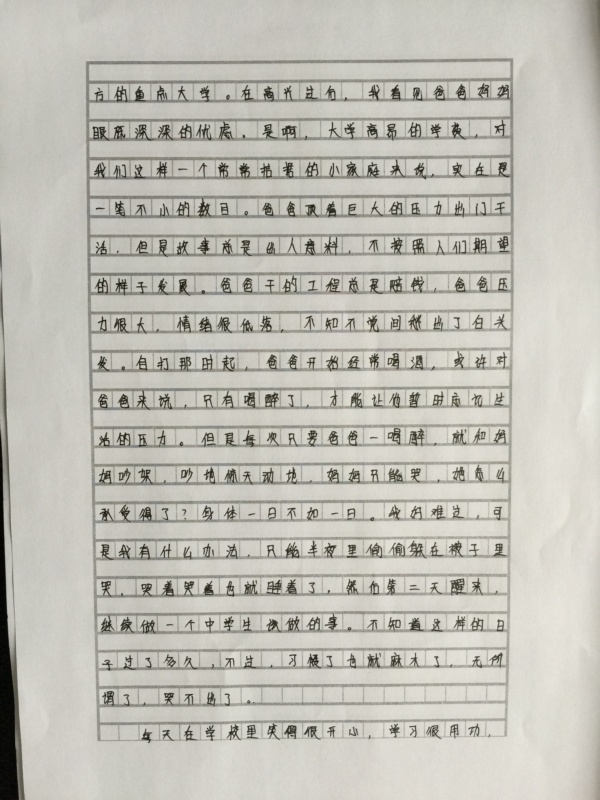 方的重点大学。在高兴过后，我看见爸爸妈妈
眼底深深的忧虑。是啊，大学高昂的学费，对
我们这样一个常常拮据的小家庭来说，实在是
一笔不小的数目。爸爸顶着巨大的压力出门干
活，但是故事总是出人意料，不按照人们期望
的样子发展。爸爸干的工程总是赔钱，爸爸压
力很大，情绪很低落，不知不觉间熬出了白头
发。自打那时起，爸爸开始经常喝酒，或许对
爸爸来说，只有喝醉了，才能让他暂时忘记生
活的压力。但是每次只要爸爸一喝醉，就和妈
妈吵架，吵地惊天动地，妈妈只能哭，她怎么
承受得了？身体一日不如一日。我好难过，可
是我有什么办法，只能半夜里偷偷躲在被子里
哭，哭着哭着也就睡着了，然后第二天醒来，
继续做一个中学生该做的事。不知道这样的日
子过了多久，不过，习惯了也就麻木了，无所
谓了，哭不出了。
每天在学校里笑得很开心，学习很用功，